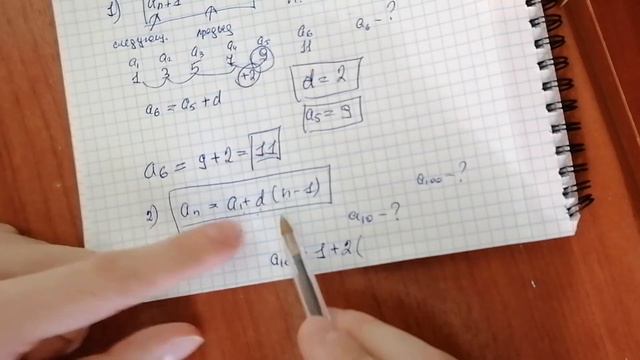 1) aₙ₊₁
следующ. предыд
a₁ a₂ a₃ a₄ a₅ a₆
1 3 5 7 9 11
+2
a₆ - ?
d = 2
a₆ = a₅ + d
a₅ = 9
a₆ = 9 + 2 = 11
2) aₙ = a₁ + d (n-1)
a₁₀₀ - ?
a₁₀ - ?
1 + 2 (